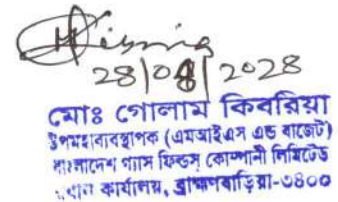 28/04/2028
মোঃ গোলাম কিবরিয়া
উপমহাব্যবস্থাপক (এমআইএস এন্ড বাজেট)
বাংলাদেশ গ্যাস ফিল্ডস্ কোম্পানী লিমিটেড
প্রধান কার্যালয়, ব্রাহ্মণবাড়িয়া-৩৪০০